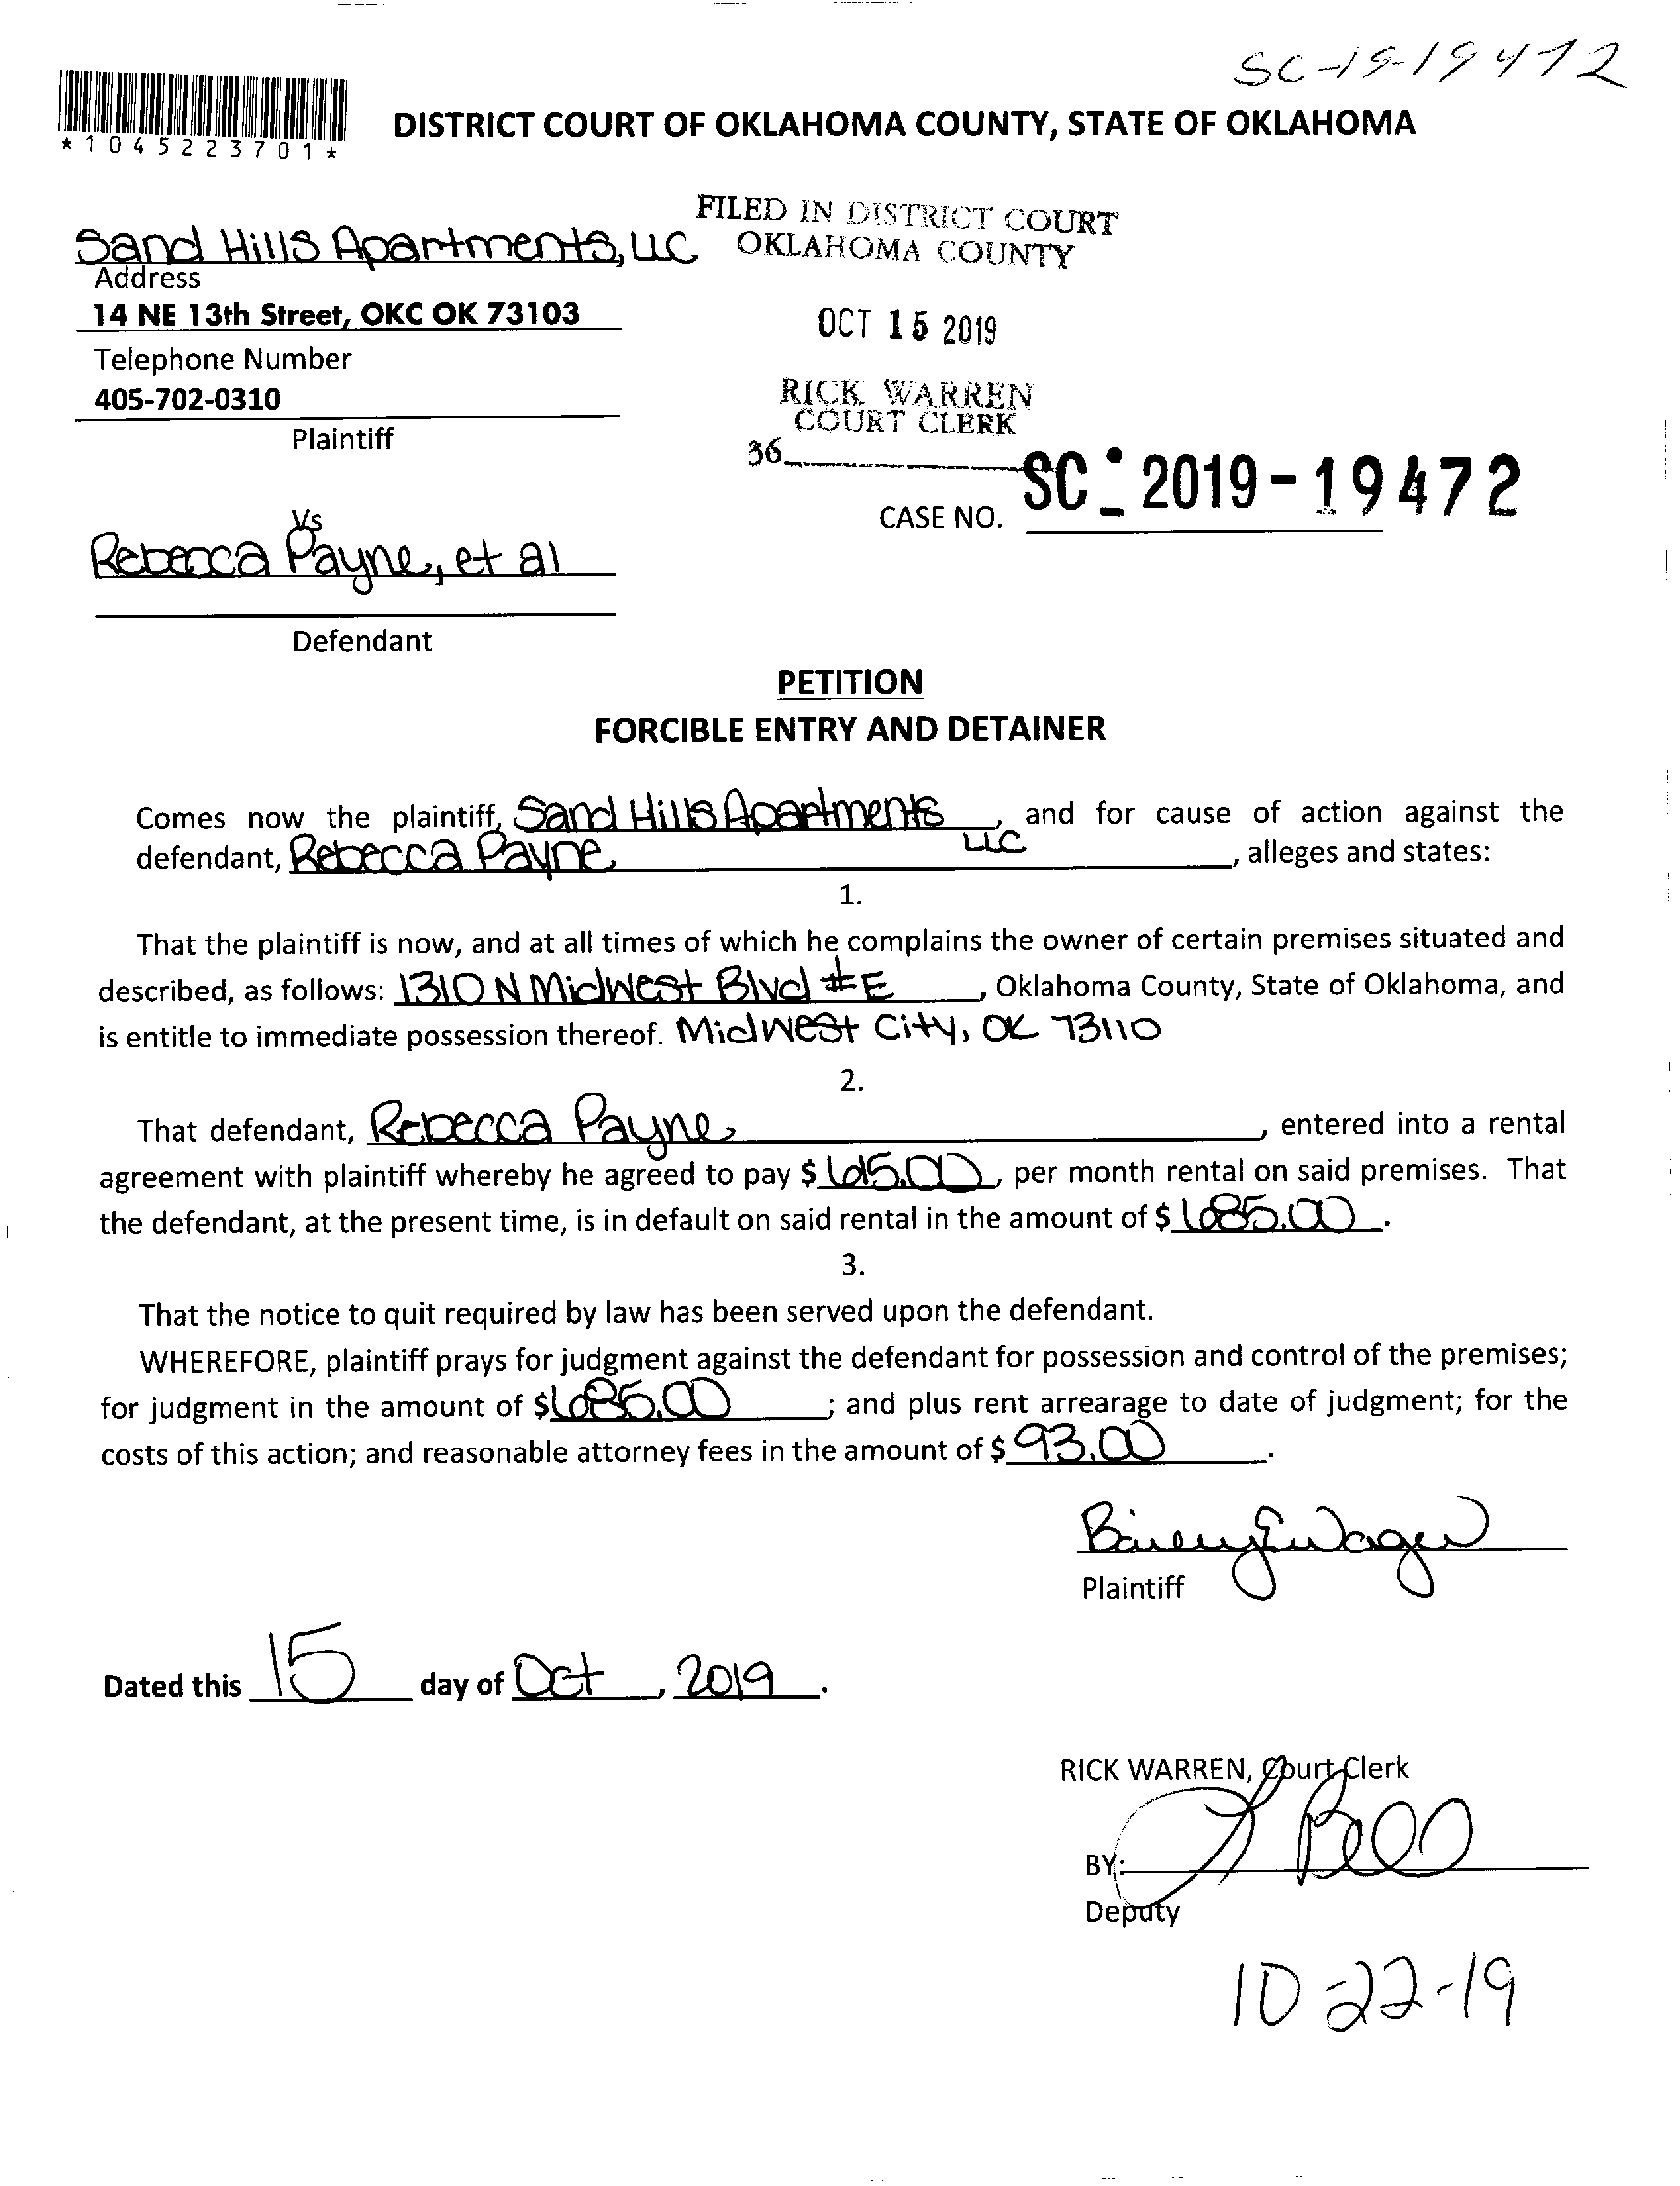 SC-19-19472
*1045223701*
DISTRICT COURT OF OKLAHOMA COUNTY, STATE OF OKLAHOMA
FILED IN DISTRICT COURT
OKLAHOMA COUNTY
Sand Hills Apartments, LLC
Address
14 NE 13th Street, OKC OK 73103
OCT 15 2019
Telephone Number
405-702-0310
RICK WARREN
COURT CLERK
Plaintiff
36
CASE NO. SC - 2019-19472
Vs
Rebecca Payne, et al
Defendant
PETITION
FORCIBLE ENTRY AND DETAINER
Comes now the plaintiff, Sand Hills Apartments LLC, and for cause of action against the
defendant, Rebecca Payne, alleges and states:
1.
That the plaintiff is now, and at all times of which he complains the owner of certain premises situated and
described, as follows: 1310 N Midwest Blvd #E, Oklahoma County, State of Oklahoma, and
is entitle to immediate possession thereof. Midwest City, OK 73110
2.
That defendant, Rebecca Payne, entered into a rental
agreement with plaintiff whereby he agreed to pay $ 615.00, per month rental on said premises. That
the defendant, at the present time, is in default on said rental in the amount of $ 685.00.
3.
That the notice to quit required by law has been served upon the defendant.
WHEREFORE, plaintiff prays for judgment against the defendant for possession and control of the premises;
for judgment in the amount of $ 685.00; and plus rent arrearage to date of judgment; for the
costs of this action; and reasonable attorney fees in the amount of $ 93.00.
Plaintiff
Dated this 15 day of Oct, 2019.
RICK WARREN, Court Clerk
BY:
Deputy
10-22-19